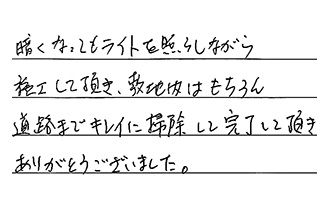 暗くなってもライトを照らしながら
施工して頂き、敷地内はもちろん
道路までキレイに掃除して完了して頂き
ありがとうございました。